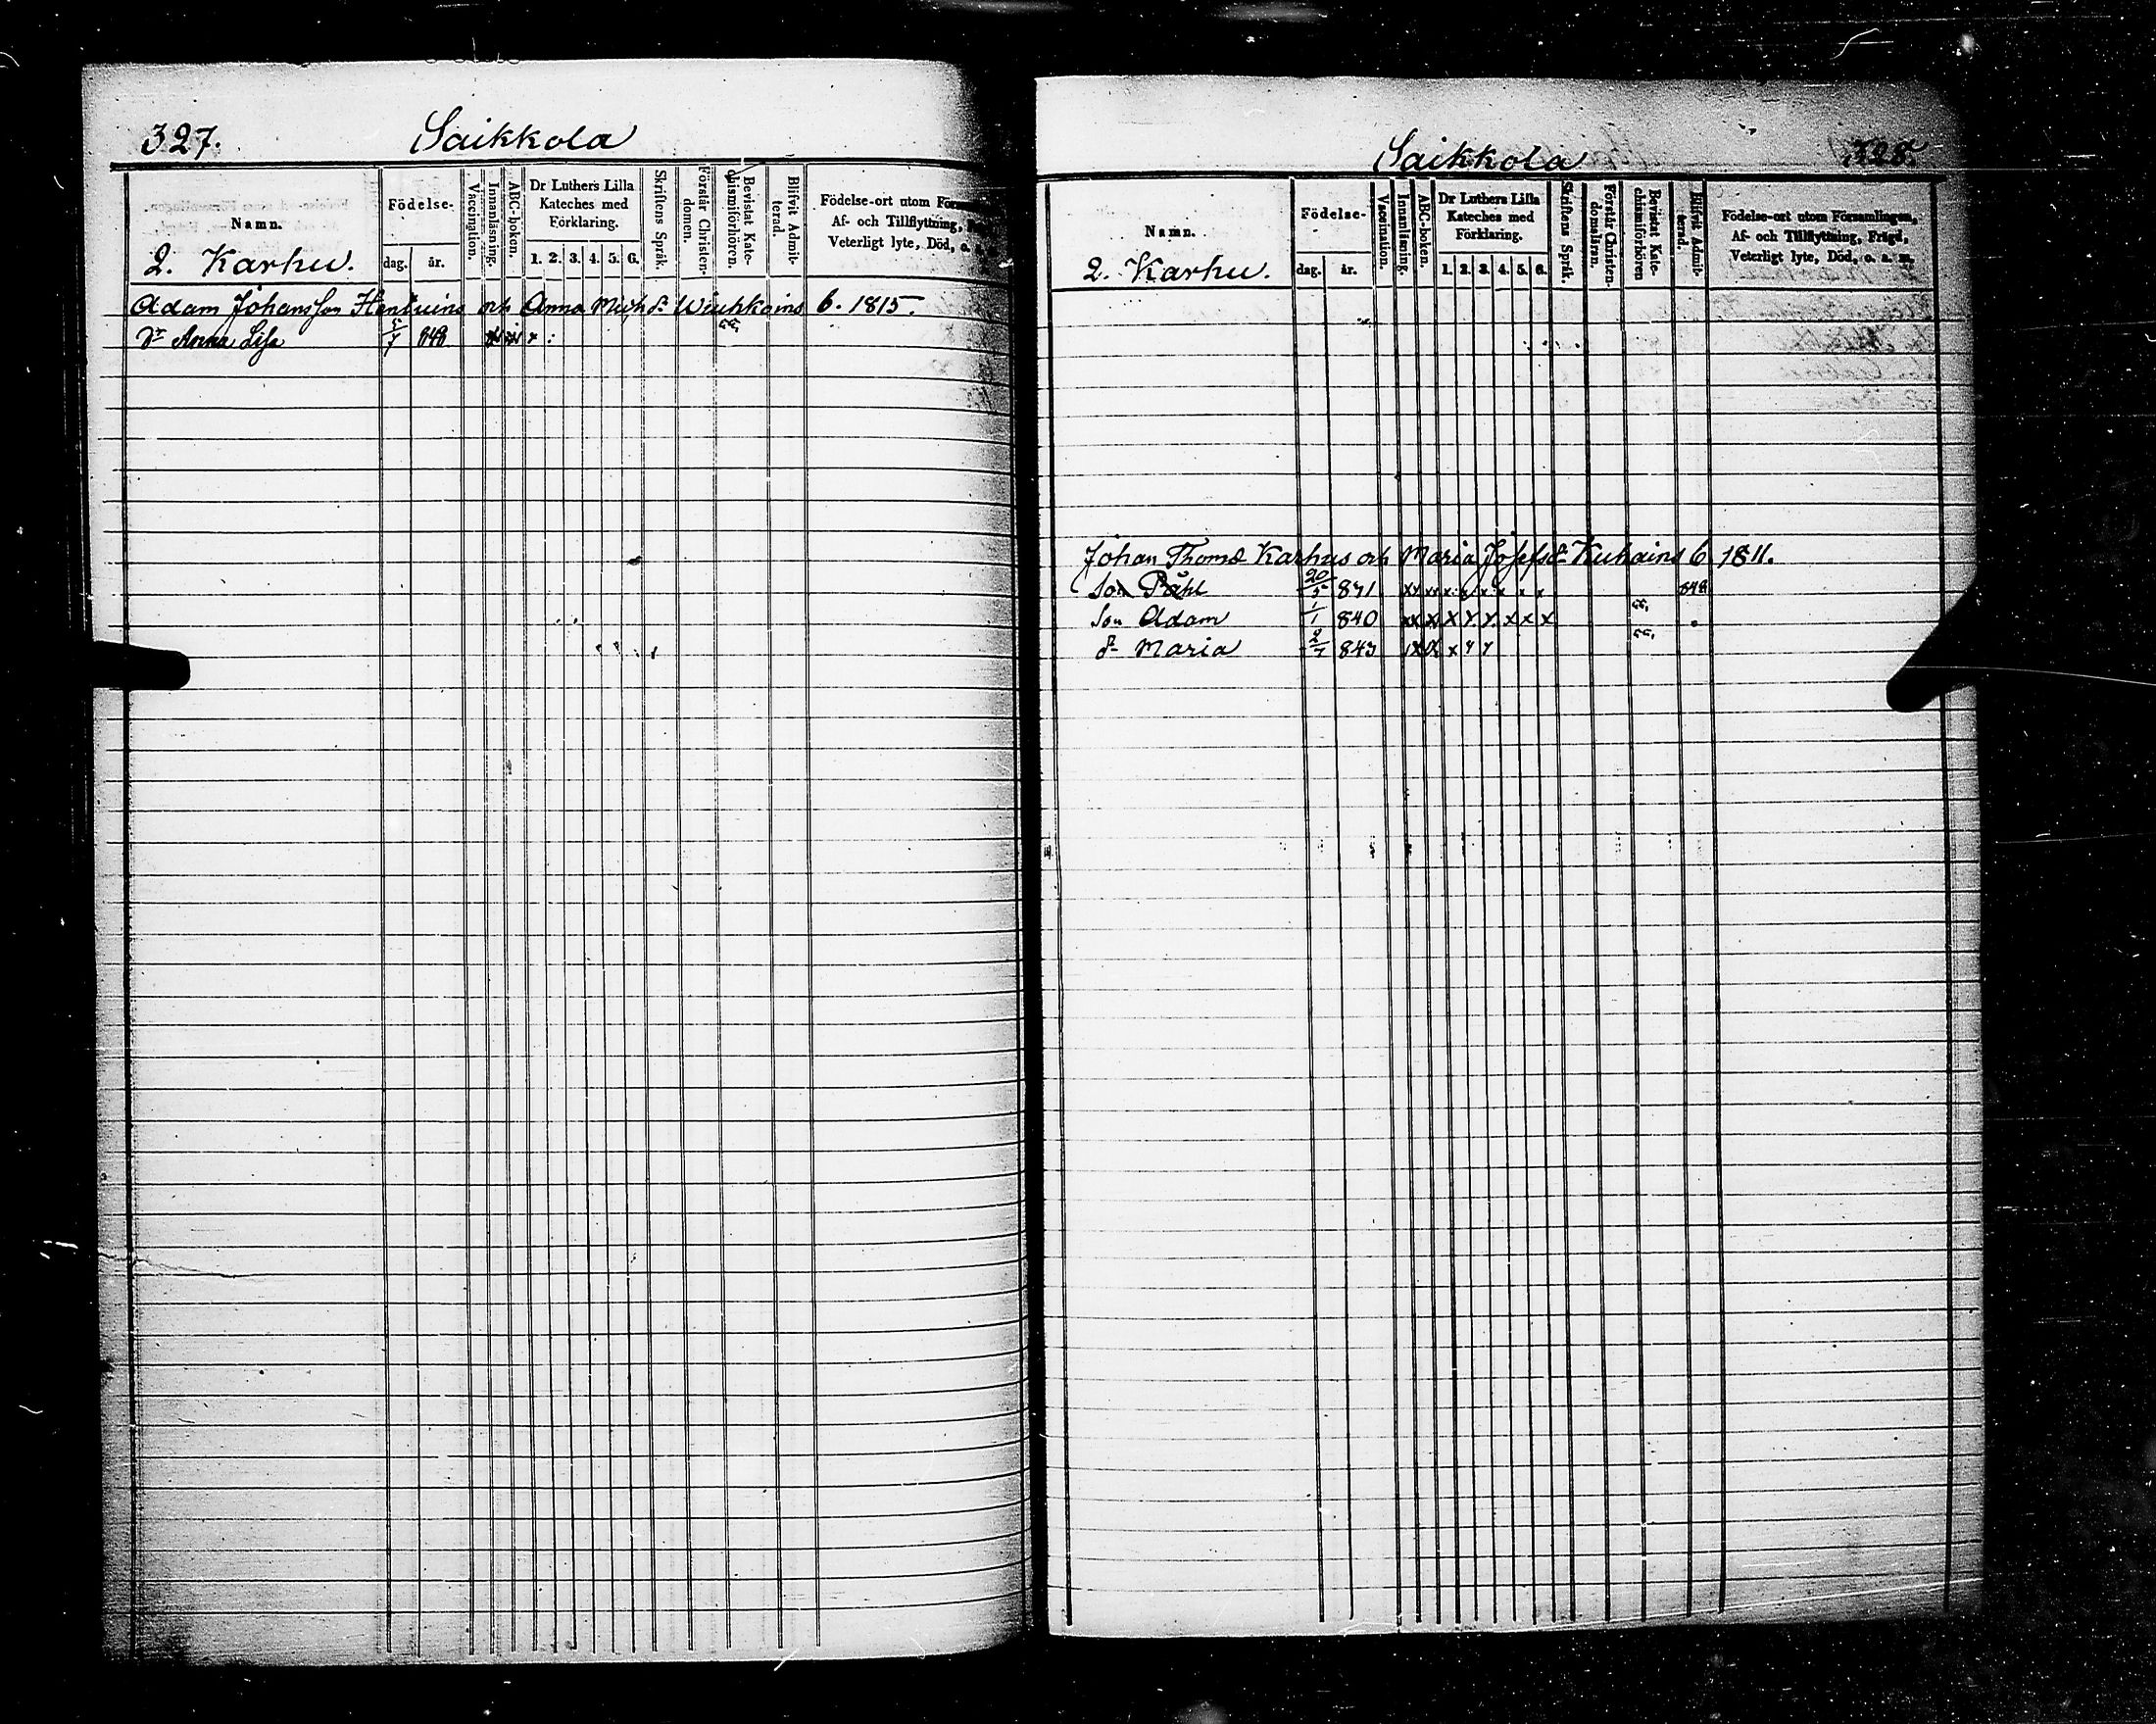 327. Saikkola
Namn. Födelse- dag. år. Vaccination. Innanläsning. ABC-boken. Dr Luthers Lilla Kateches med Förklaring. 1. 2. 3. 4. 5. 6. Skriftens Språk. Förstår Christen-domen. Bevistat Kate-chismiförhören. Blifvit Admit-terad. Födelse-ort utom Af- och Tillflyttning, Veterligt lyte, Död, o.
2. Karhu.
Adam Johansson och Anna Mich dr 6. 1815.
dr Anna Lisa 848
Saikkola 328.
Namn. Födelse- dag. år. Vaccination. Innanläsning. ABC-boken. Dr Luthers Lilla Kateches med Förklaring. 1. 2. 3. 4. 5. 6. Skriftens Språk. Förstår Christen-domsläran. Bevistat Kate-chismiförhören Blifvit Admit-terad. Födelse-ort utom Församlingen, Af- och Tillflyttning, Frägd, Veterligt lyte, Död, o. a. m.
2. Karhu.
Johan Thomæ Karhus och Maria Josefs dr Kuhains 6. 1811.
Son Påhl 20/5 831 x x x x x x 848
Son Adam 1/1 840 xx x x x x x x x
dr Maria 843 x